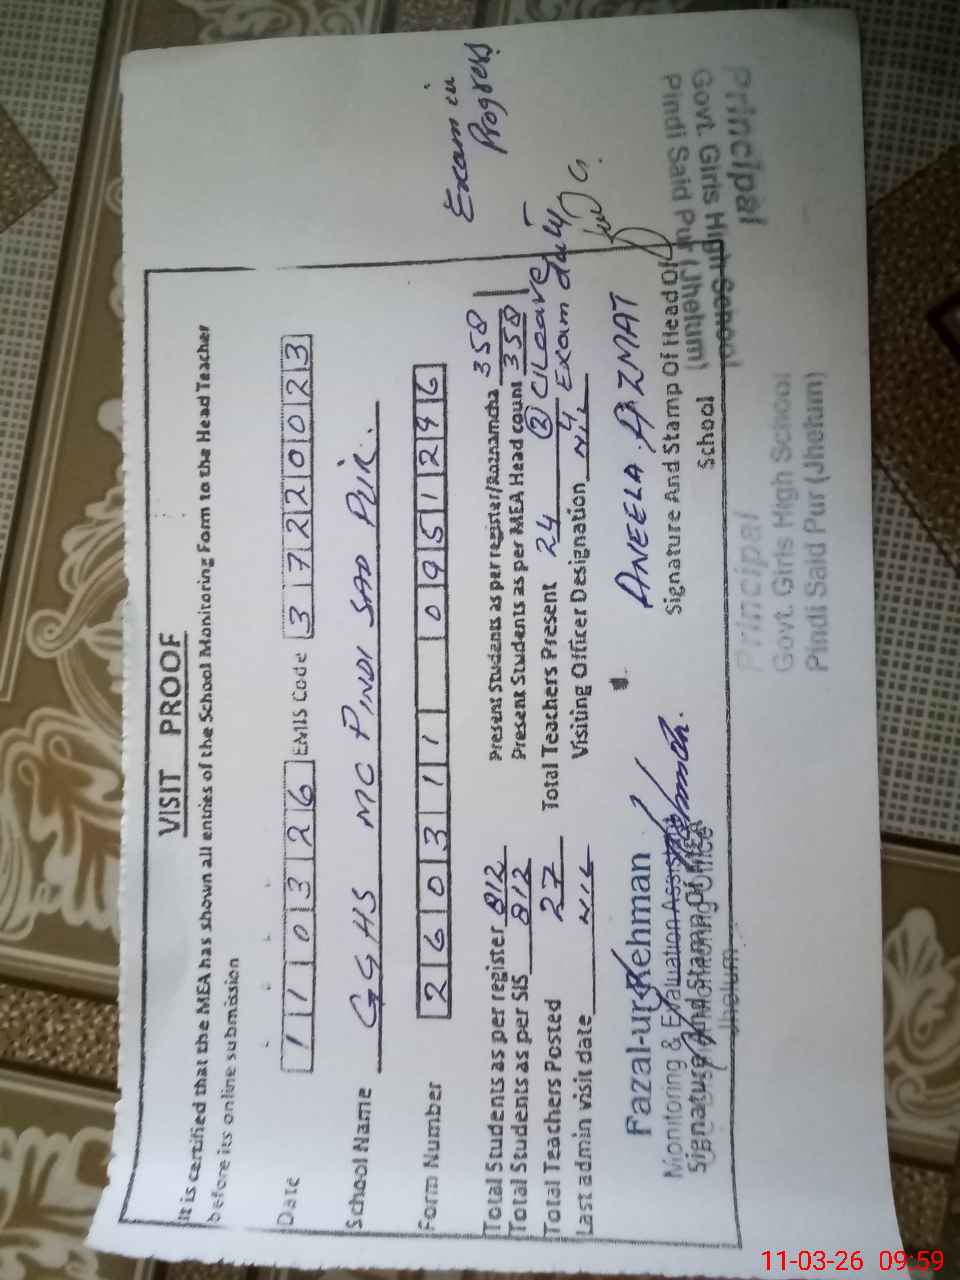 VISIT PROOF
It is certified that the MEA has shown all entries of the School Monitoring Form to the Head Teacher
before its online submission
Date 110326 EMIS Code 37220023
School Name GGHS MC PINDI SAD PUR.
Form Number 260311 0951296
Exam in
Progress
Total Students as per register 812 Present Students as per register/Roznamcha 358
Total Students as per SIS 812 Present Students as per MEA Head count 358
Total Teachers Posted 27 Total Teachers Present 24 ② C/Leave
Last admin visit date NIL Visiting Officer Designation NIL 4 Exam duty
Fazal-ur-Rehman ANEELA AZMAT
Monitoring & Evaluation Assistant
Signature And Stamp Of MEA Signature And Stamp Of Head Of
School
Jhelum
Principal
Govt. Girls High School
Pindi Said Pur (Jhelum)
Principal
Govt. Girls High School
Pindi Said Pur (Jhelum)
11-03-26 09:59